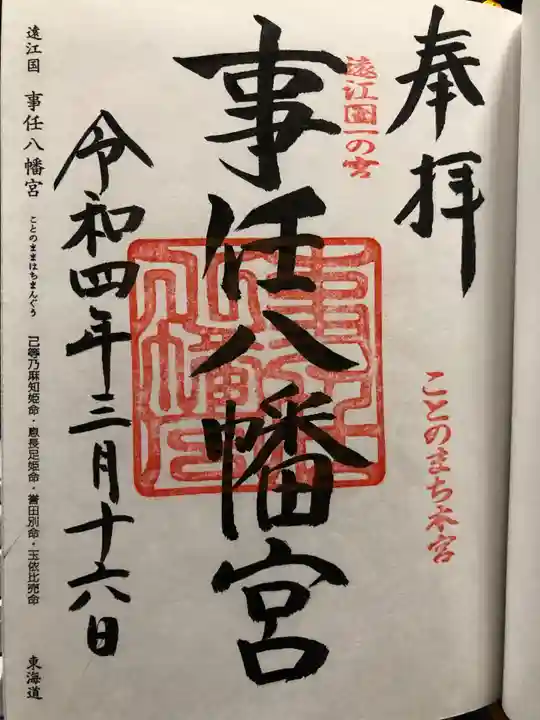 奉拝
遠江国一の宮
ことのまち本宮
事任八幡宮
令和四年三月十六日
遠江国 事任八幡宮 ことのままはちまんぐう 己等乃麻知姫命・息長足姫命・誉田別命・玉依比売命 東海道